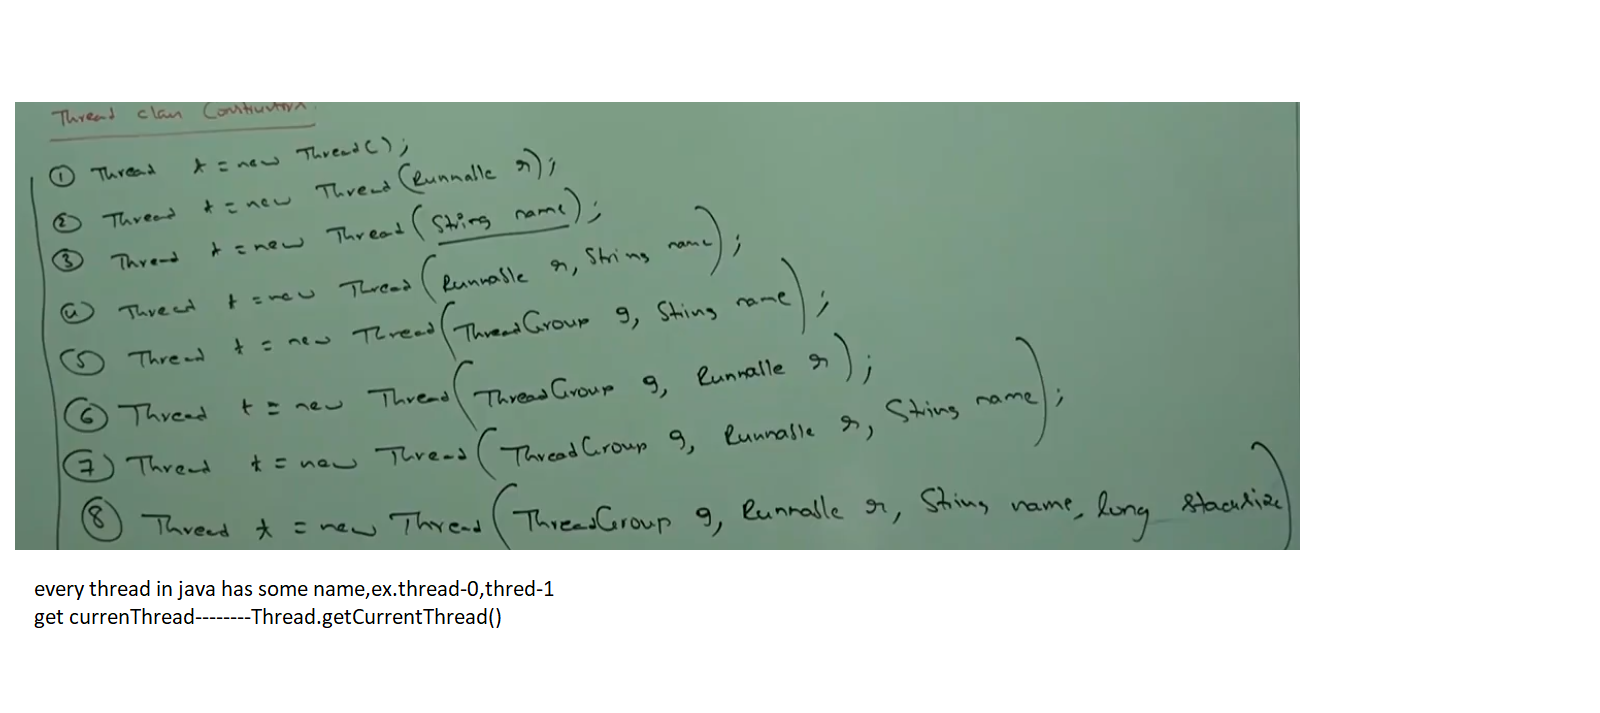 Thread class Constructors
① Thread t = new Thread();
② Thread t = new Thread(Runnable r);
③ Thread t = new Thread(String name);
④ Thread t = new Thread(Runnable r, String name);
⑤ Thread t = new Thread(ThreadGroup g, String name);
⑥ Thread t = new Thread(ThreadGroup g, Runnable r);
⑦ Thread t = new Thread(ThreadGroup g, Runnable r, String name);
⑧ Thread t = new Thread(ThreadGroup g, Runnable r, String name, long stacksize)
every thread in java has some name,ex.thread-0,thred-1
get currenThread--------Thread.getCurrentThread()